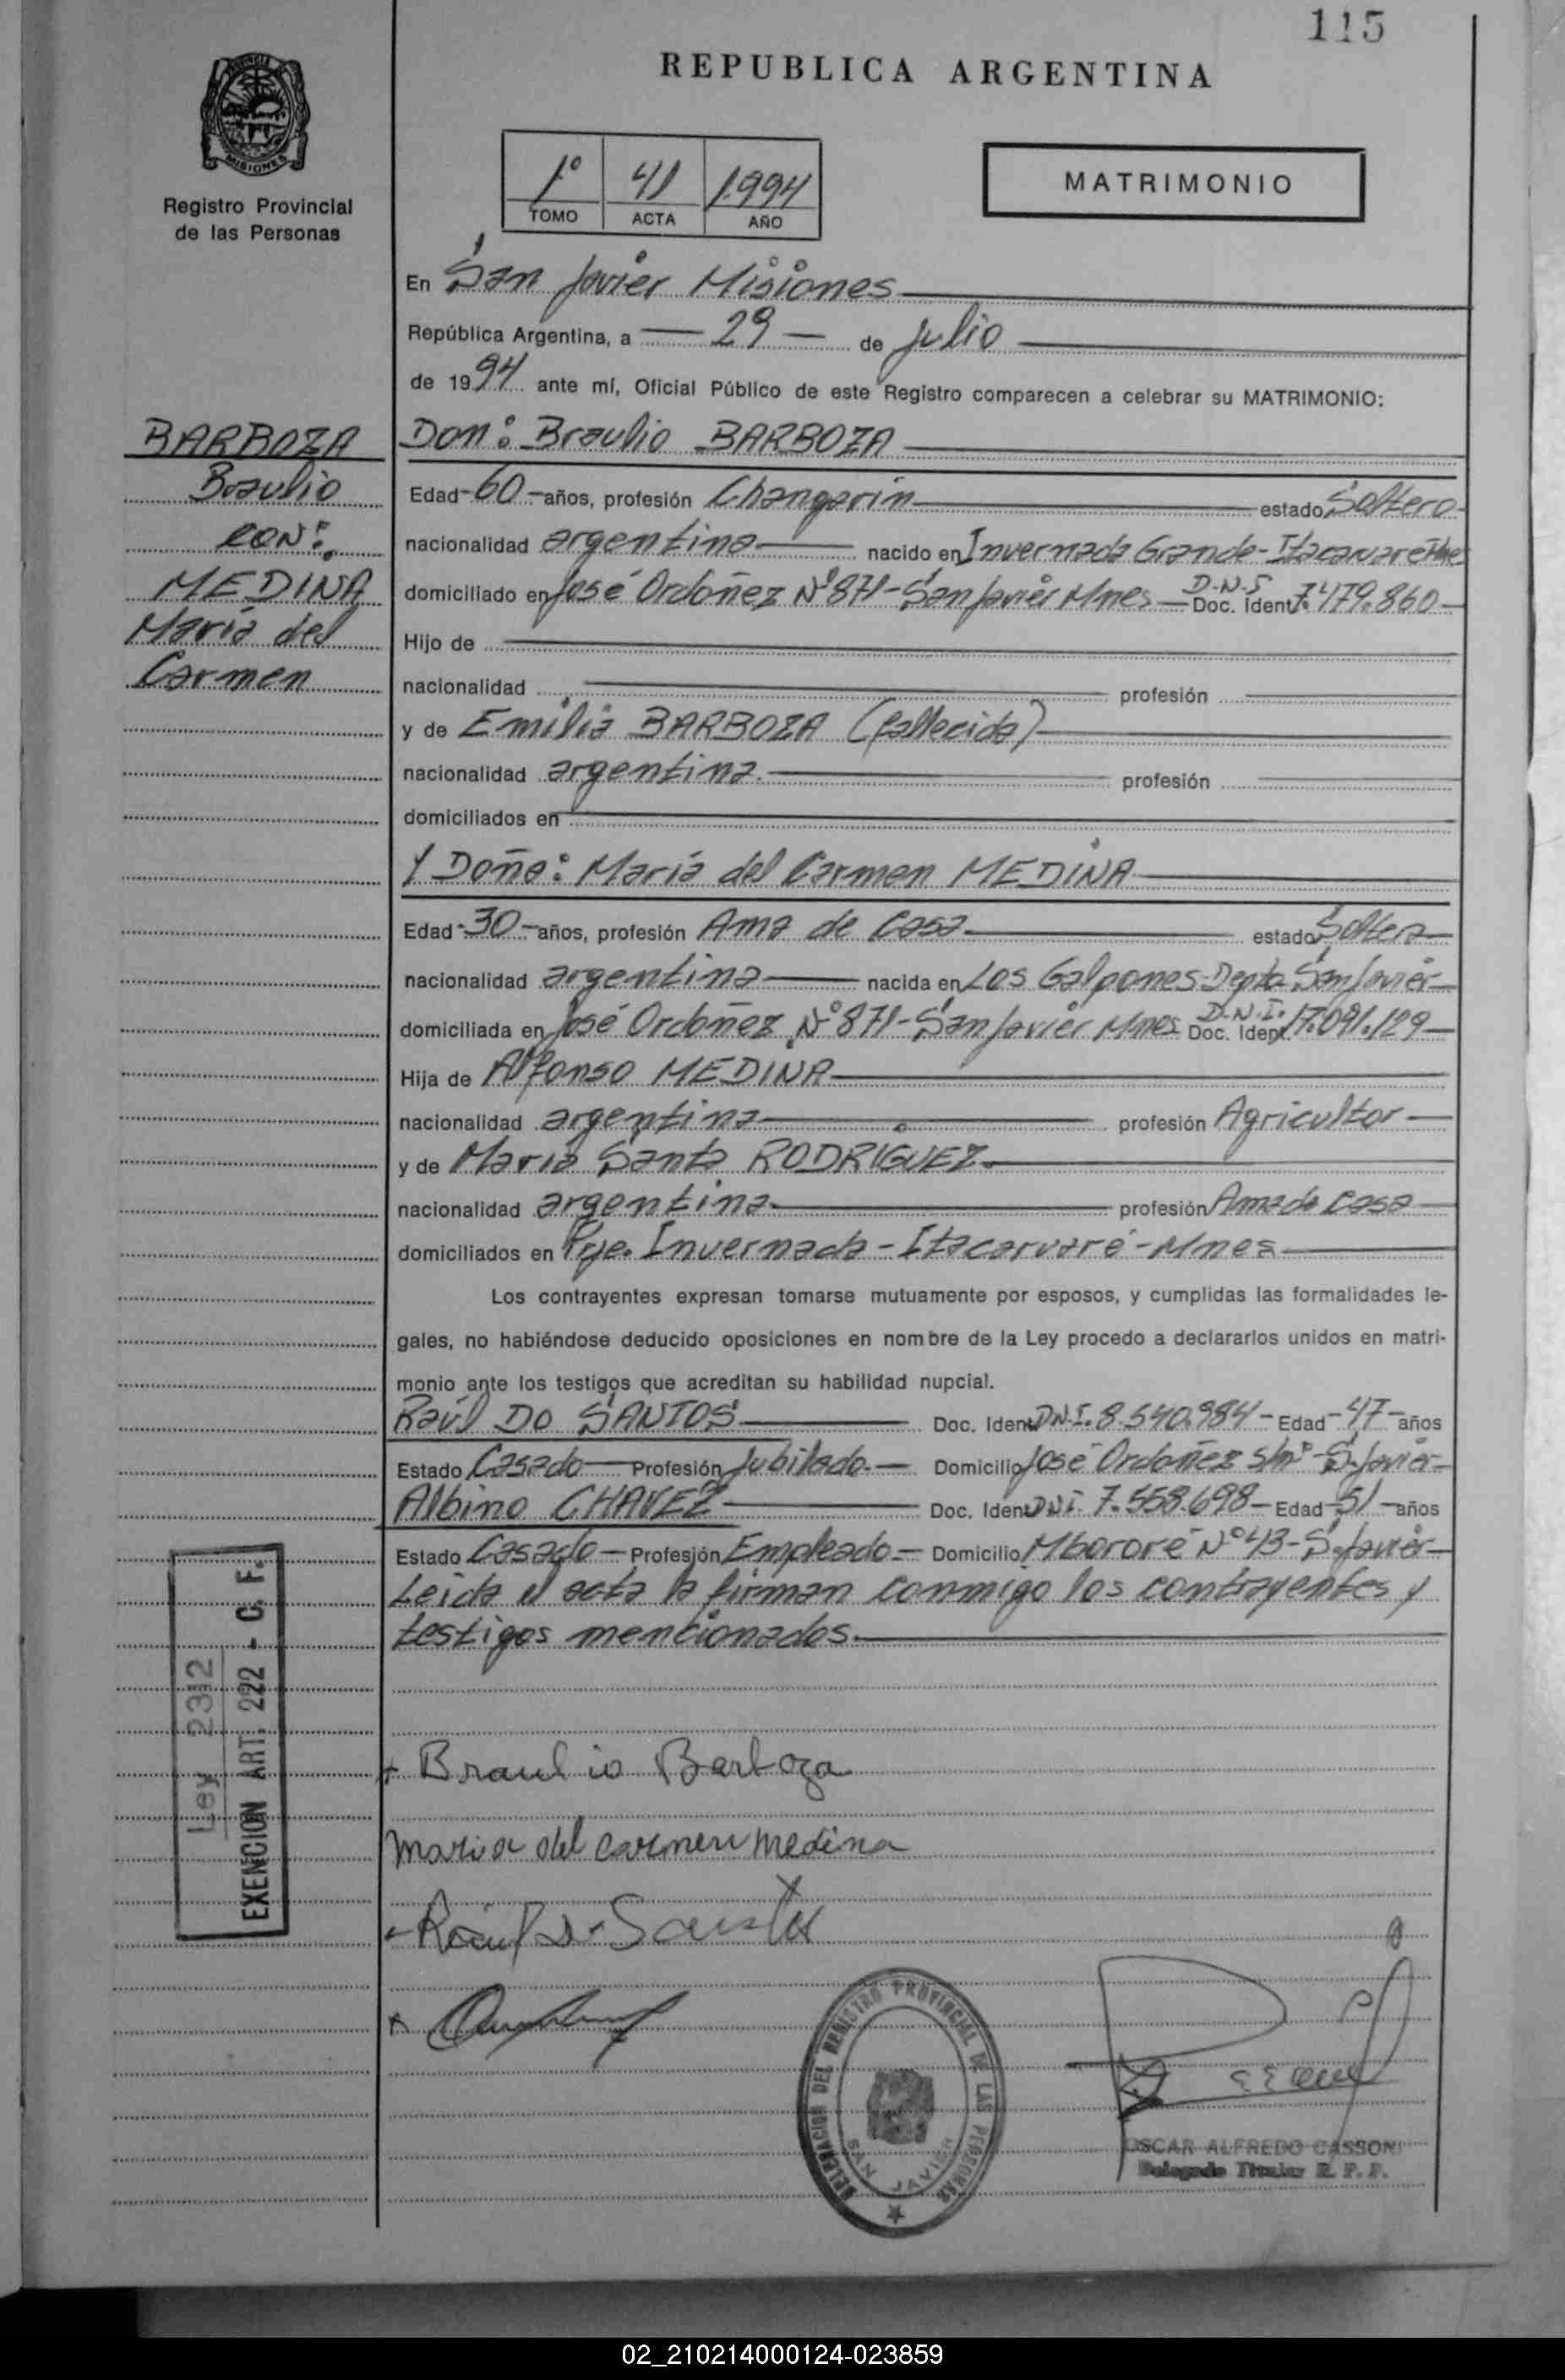 115
REPUBLICA ARGENTINA
MISIONES
Registro Provincial
de las Personas
1º 41 1994
TOMO ACTA AÑO
MATRIMONIO
En San Javier Misiones
República Argentina, a 29 de Julio
de 1994 ante mí, Oficial Público de este Registro comparecen a celebrar su MATRIMONIO:
BARBOZA
Braulio
CON:
MEDINA
María del
Carmen
Don: Braulio BARBOZA
Edad 60 años, profesión Changarin estado Soltero
nacionalidad argentina nacido en Invernada Grande - Itacaruaré
domiciliado en José Ordoñez Nº 871 - San Javier Mnes D.N.I Doc. Ident. 7.479.860
Hijo de
nacionalidad profesión
y de Emilia BARBOZA (fallecida)
nacionalidad argentina. profesión
domiciliados en
Y Doña: María del Carmen MEDINA
Edad 30 años, profesión Ama de Casa estado Soltera
nacionalidad argentina nacida en Los Galpones-Depto San Javier
domiciliada en José Ordoñez Nº 871 - San Javier Mnes D.N.I. Doc. Ident. 17.091.129
Hija de Alfonso MEDINA
nacionalidad argentina profesión Agricultor
y de María Santa RODRIGUEZ
nacionalidad argentina profesión Ama de casa
domiciliados en Pje. Invernada - Itacaruaré - Mnes
Los contrayentes expresan tomarse mutuamente por esposos, y cumplidas las formalidades le-
gales, no habiéndose deducido oposiciones en nombre de la Ley procedo a declararlos unidos en matri-
monio ante los testigos que acreditan su habilidad nupcial.
Raúl DO SANTOS Doc. Ident. D.N.I. 8.540.984 - Edad 47 años
Estado Casado Profesión Jubilado. Domicilio José Ordoñez s/nº - S. Javier
Albino CHAVEZ Doc. Ident. DNI. 7.558.698 - Edad 51 años
Estado Casado - Profesión Empleado - Domicilio Mbororé Nº 43 - S. Javier
Leida el acta la firman conmigo los contrayentes y
testigos mencionados.
Ley 2312
EXENCION ART. 222 - C. F.
+ Braulio Barboza
maria del carmen medina
Raul Do Santos
DELEGACION DEL REGISTRO PROVINCIAL DE LAS PERSONAS
SAN JAVIER
OSCAR ALFREDO CASSONI
Delegado Titular R. P. P.
02_210214000124-023859